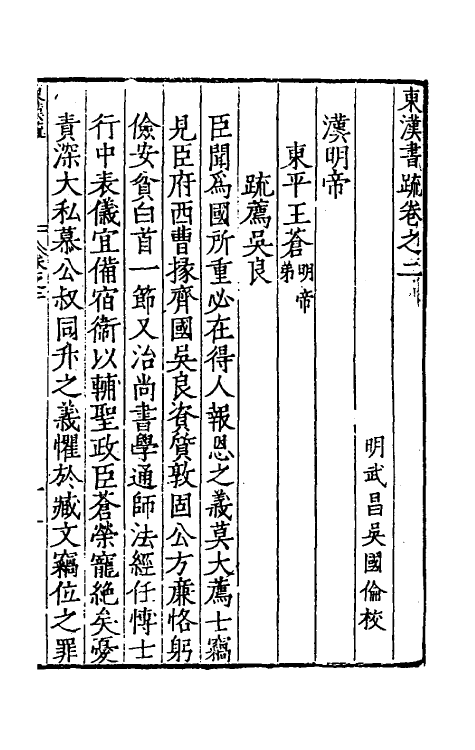 東漢書疏卷之二
明武昌吳國倫校
漢明帝
東平王蒼明帝弟
疏薦吳良
臣聞爲國所重必在得人報恩之義莫大薦士竊
見臣府西曹掾齊國吳良資質敦固公方廉恪躬
儉安貧白首一節又治尚書學通師法經任博士
行中表儀宜備宿衞以輔聖政臣蒼榮寵絕矣憂
責深大私慕公叔同升之義懼於臧文竊位之罪